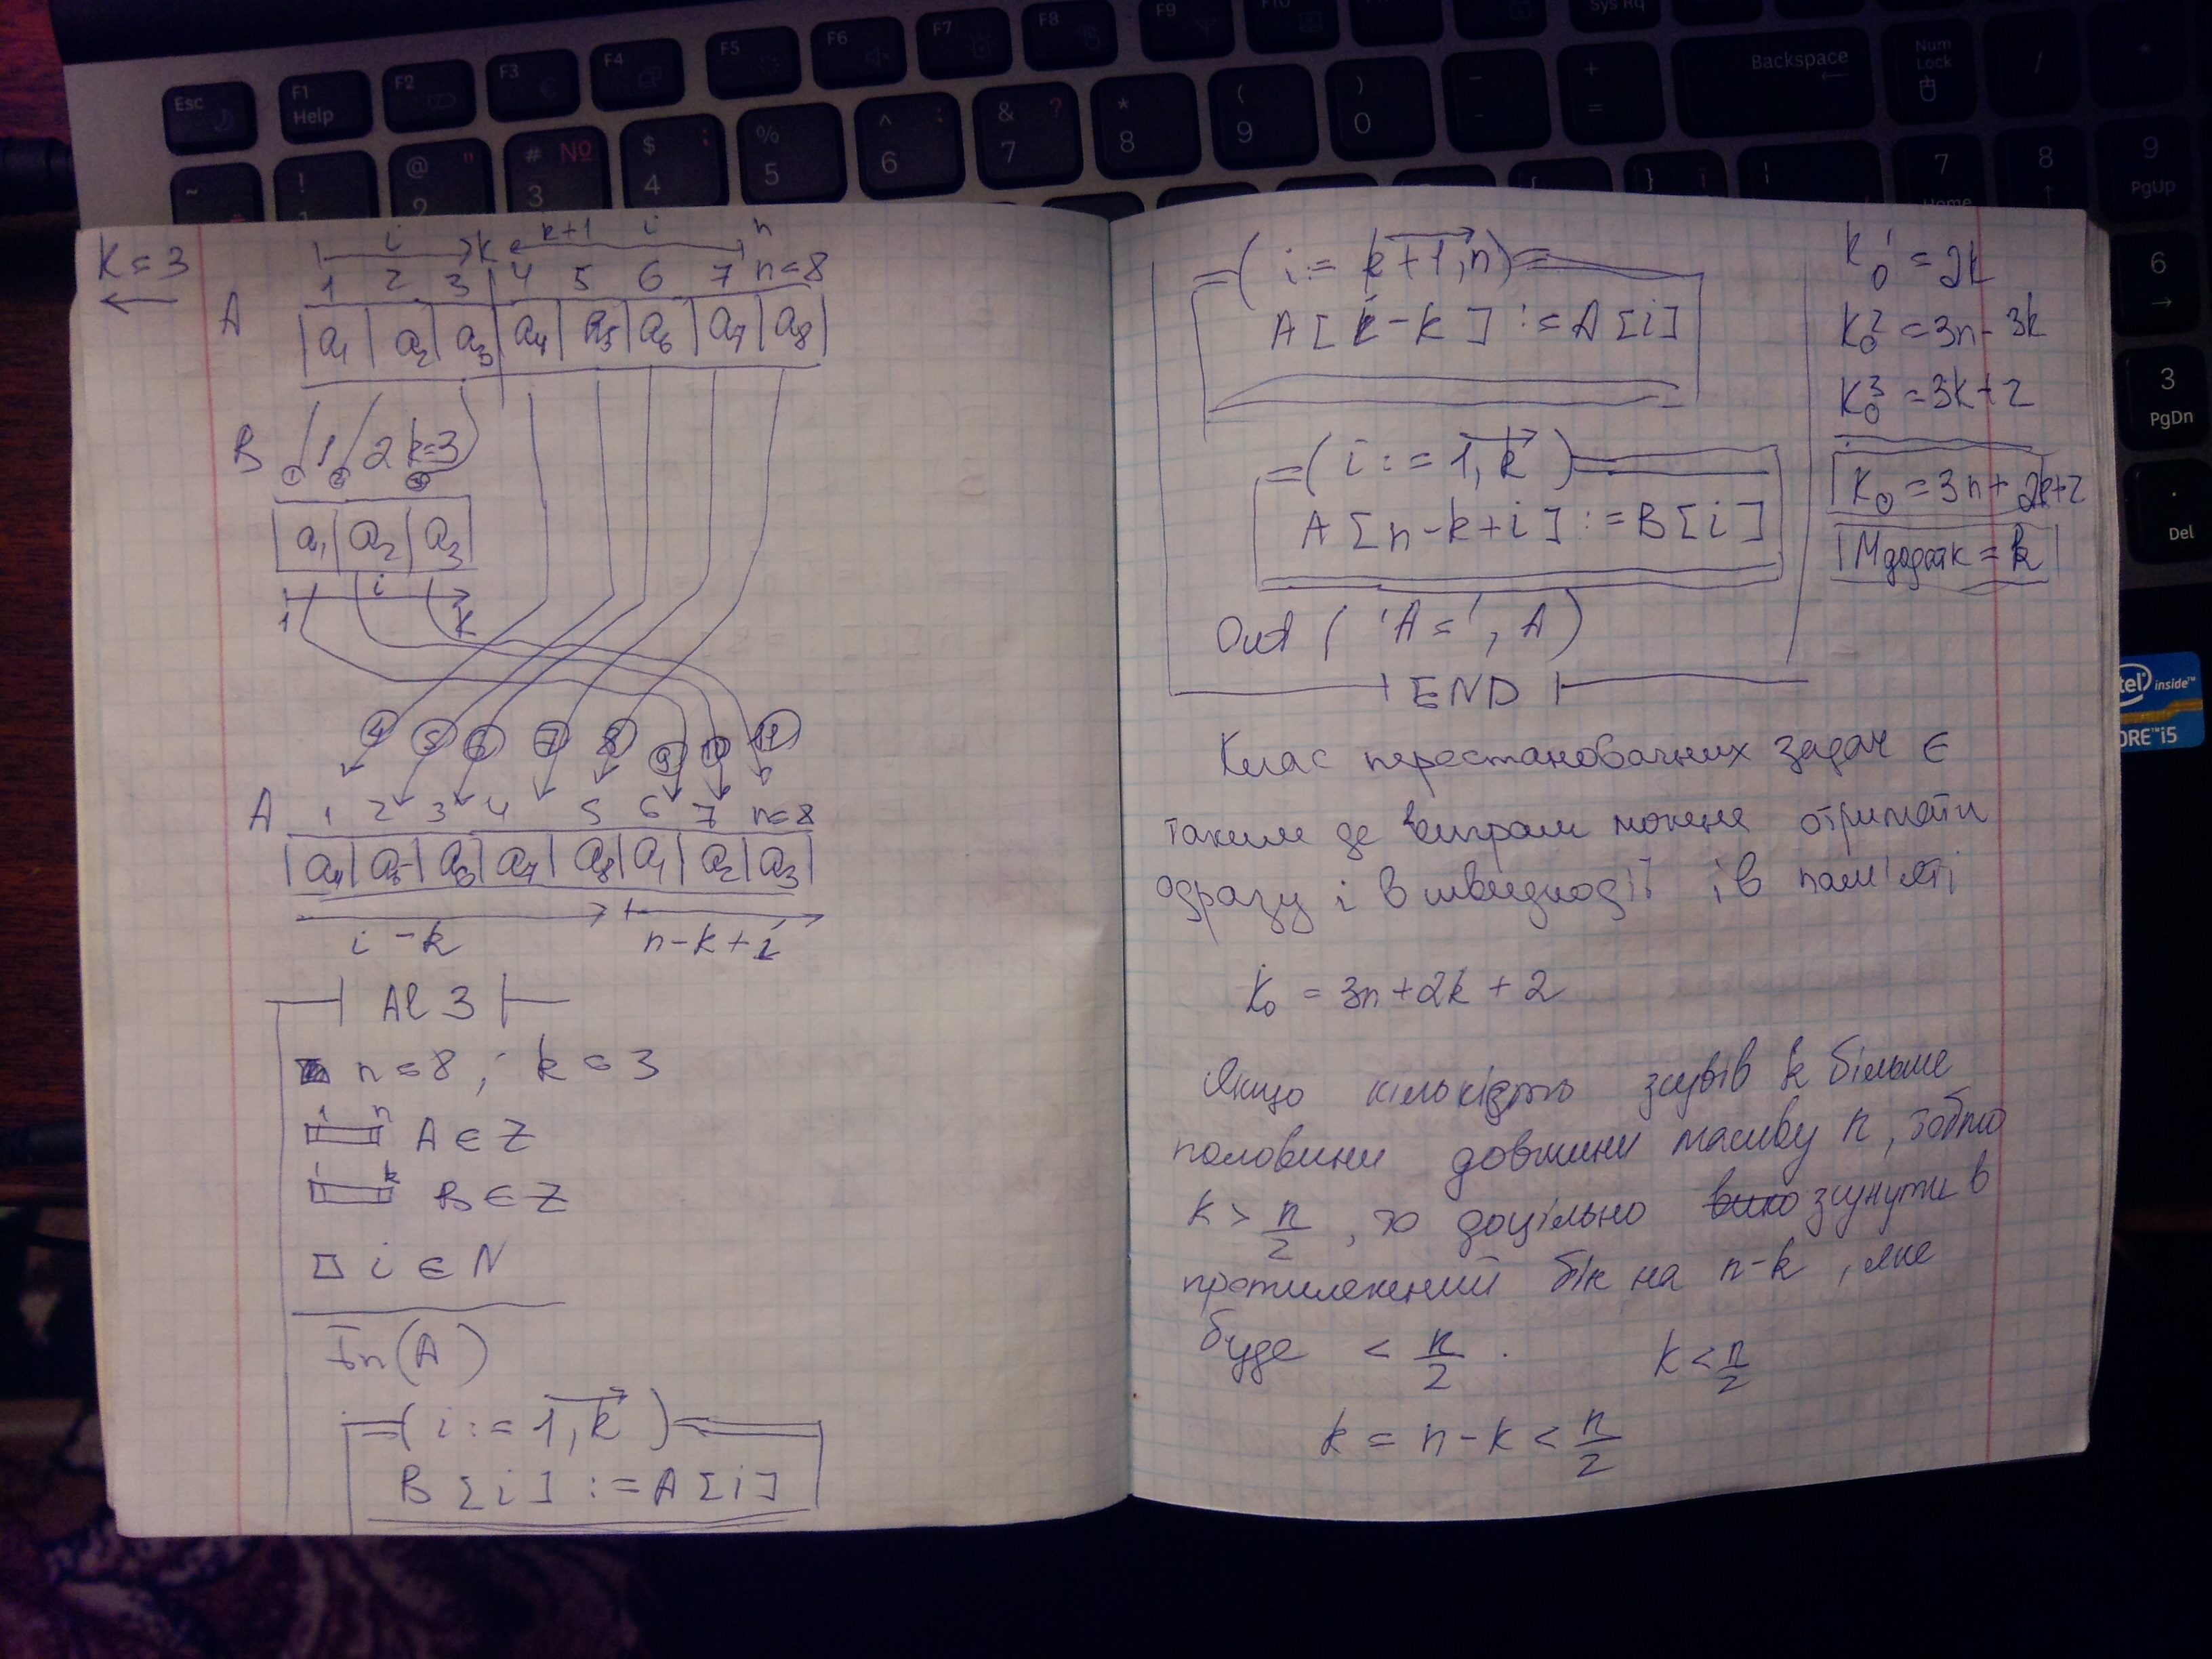 Esc
F1 Help
F2
F3
F4
F5
F6
F7
F8
F9
F10
Sys Rq
Backspace
Num Lock
! @ 2 " # 3 № $ 4 ; % 5 ^ 6 : & 7 ? * 8 ( 9 ) 0 - + =
7 Home
8
9 PgUp
6
3 PgDn
. Del
intel inside™
CORE™i5
K = 3
1 i k k+1 i n
1 2 3 4 5 6 7 n=8
A
a1 a2 a3 a4 a5 a6 a7 a8
B 1 2 k=3
① ② ③
a1 a2 a3
1 i k
④ ⑤ ⑥ ⑦ ⑧ ⑨ ⑩ ⑪
A 1 2 3 4 5 6 7 n=8
a4 a5 a6 a7 a8 a1 a2 a3
i - k n-k+i
Al 3
n = 8 ; k = 3
1 n A ∈ Z
1 k B ∈ Z
i ∈ N
In(A)
( i := 1, k )
B [i] := A [i]
( i := k+1, n )
A [i-k] := A [i]
( i := 1, k )
A [n-k+i] := B [i]
Out ( 'A=', A )
END
K₀¹ = 2k
K₀² = 3n - 3k
K₀³ = 3k+2
K₀ = 3n + 2k+2
Mдодатк = k
Клас перестановочних задач є
таким де виграш можна отримати
одразу і в швидкодії і в пам'яті
K₀ = 3n + 2k + 2
Якщо кількість зсувів k більше
половини довжини масиву n, тобто
k > n/2, то доцільно зсунути в
протилежний бік на n-k, яке
буде < n/2. k < n/2
k = n - k < n/2